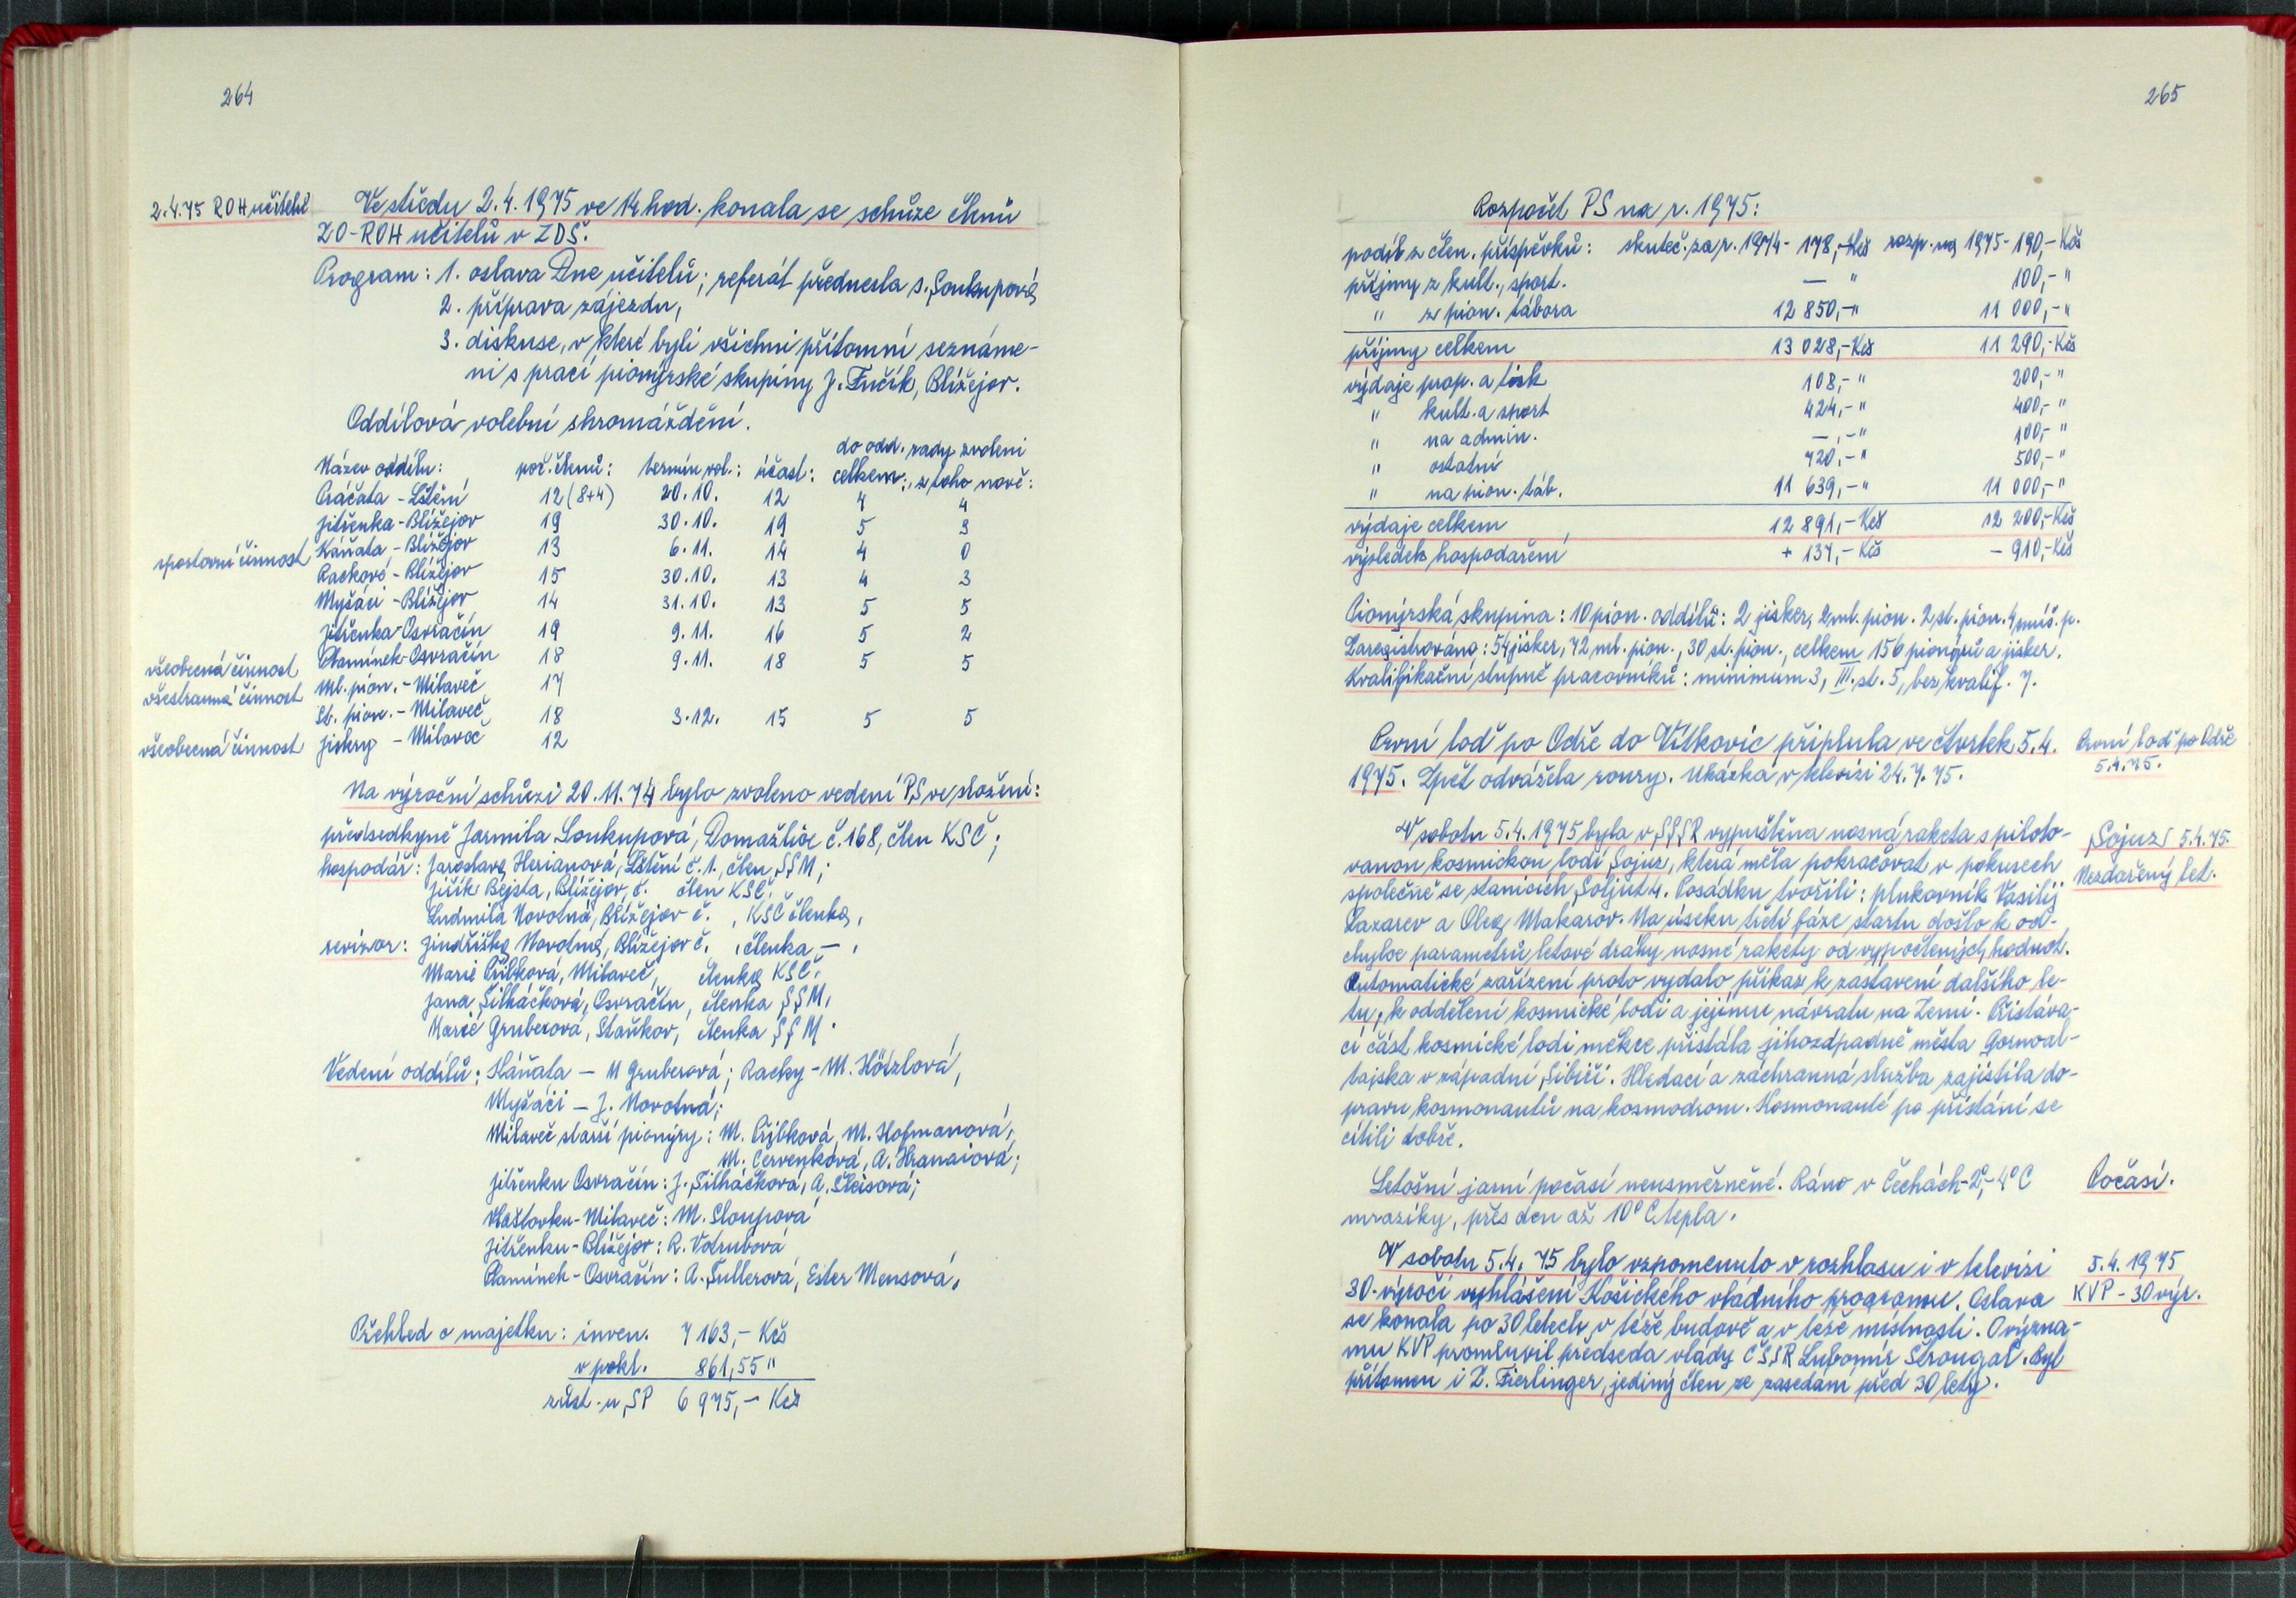 264
2.4.75 ROH učitelů
Ve středu 2.4.1975 ve 14 hod. konala se schůze členů
ZO-ROH učitelů v ZDŠ.
Program: 1. oslava Dne učitelů; referát přednesla s. Soukupová,
2. příprava zájezdu,
3. diskuse, v které byli všichni přítomní seznáme-
ni s prací pionýrské skupiny J. Fučík, Blížejov.
Oddílová volební shromáždění.
do odd. rady zvoleni
Název oddílu: poč. členů: termín vol.: účast: celkem: z toho nově:
Ptáčata - Lštění 12 (8+4) 20.10. 12 4 4
Jitřenka - Blížejov 19 30.10. 19 5 3
sportovní činnost Káňata - Blížejov 13 6.11. 14 4 0
Rackové - Blížejov 15 30.10. 13 4 3
Myšáci - Blížejov 14 31.10. 13 5 5
Jitřenka - Osvračín 19 9.11. 16 5 2
všeobecná činnost Plamínek - Osvračín 18 9.11. 18 5 5
všestranná činnost Ml. pion. - Milaveč 17
St. pion. - Milaveč 18 3.12. 15 5 5
všeobecná činnost Jiskry - Milaveč 12
Na výroční schůzi 20.11.74 bylo zvoleno vedení PS ve složení:
předsedkyně Jarmila Soukupová, Domažlice č. 168, člen KSČ;
hospodář: Jaroslava Hermanová, Lštění č. 1., člen SSM;
Jiřík Bejsta, Blížejov, č. člen KSČ.
Ludmila Novotná, Blížejov č. , KSČ členka,
revizor: Jindřiška Novotná, Blížejov č. , členka - ,
Marie Přibková, Milaveč, členka KSČ.
Jana Šilháčková, Osvračín, členka SSM,
Marie Gruberová, Staňkov, členka SSM.
Vedení oddílů: Káňata - M Gruberová; Racky - M. Hötzlová,
Myšáci - J. Novotná;
Milaveč starší pionýry: M. Přibková, M. Hofmanová,
M. Červenková, A. Hranaiová;
Jitřenku Osvračín: J. Šilháčková, A. Šleisová;
Vlaštovku - Milaveč: M. Sloupová
Jitřenku - Blížejov: R. Votrubová
Plamínek - Osvračín: A. Fullerová, Ester Mensová,
Přehled o majetku: inven. 7 163,- Kčs
v pokl. 861,55 "
zůst. u SP 6 975,- Kčs
265
Rozpočet PS na r. 1975:
podíl z člen. příspěvků: skuteč. za r. 1974 - 178,- Kčs rozp. na 1975 - 190,- Kčs
příjmy z kult., sport. — " 100,- "
" z pion. tábora 12 850,- " 11 000,- "
příjmy celkem 13 028,- Kčs 11 290,- Kčs
výdaje prop. a tisk 108,- " 200,- "
" kult. a sport 424,- " 400,- "
" na admin. —,- " 100,- "
" ostatní 720,- " 500,- "
" na pion. táb. 11 639,- " 11 000,- "
výdaje celkem 12 891,- Kčs 12 200,- Kčs
výsledek hospodaření + 137,- Kčs - 910,- Kčs
Pionýrská skupina: 10 pion. oddílů: 2 jisker, 2 ml. pion. 2 st. pion. 4 smíš. p.
Zaregistrováno: 54 jisker, 72 ml. pion., 30 st. pion., celkem 156 pionýrů a jisker.
Kvalifikační stupně pracovníků: minimum 3, III. st. 5, bez kvalif. 7.
První loď po Odře do Vítkovic připlula ve čtvrtek 5.4.
1975. Zpět odvážela roury. Ukázka v televizi 24.7.75.
První loď po Odře
5.4.75.
V sobotu 5.4.1975 byla v SSSR vypuštěna nosná raketa s piloto-
vanou kosmickou lodí Sojuz, která měla pokračovat v pokusech
společně se stanicích Saljut 4. Posádku tvořili: plukovník Vasilij
Lazarev a Oleg Makarov. Na úseku třetí fáze startu došlo k od-
chylce parametrů letové dráhy nosné rakety od vypočtených hodnot.
Automatické zařízení proto vydalo příkaz k zastavení dalšího le-
tu, k oddělení kosmické lodi a jejímu návratu na Zemi. Přistáva-
cí část kosmické lodi měkce přistála jihozápadně města Gornoal-
tajska v západní Sibiři. Hledací a záchranná služba zajistila do-
pravu kosmonautů na kosmodrom. Kosmonauté po přistání se
cítili dobře.
Sojuz 5.4.75.
Nezdařený let.
Letošní jarní počasí neusměrněné. Ráno v Čechách -2,-4°C
mrazíky, přes den až 10°C tepla.
Počasí.
V sobotu 5.4.75 bylo vzpomenuto v rozhlasu i v televizi
30-výročí vyhlášení Košického vládního programu. Oslava
se konala po 30 letech v téže budově a v téže místnosti. O význa-
mu KVP promluvil předseda vlády ČSSR Lubomír Štrougal. Byl
přítomen i Z. Fierlinger, jediný člen ze zasedání před 30 lety.
5.4.1975
KVP - 30 výr.